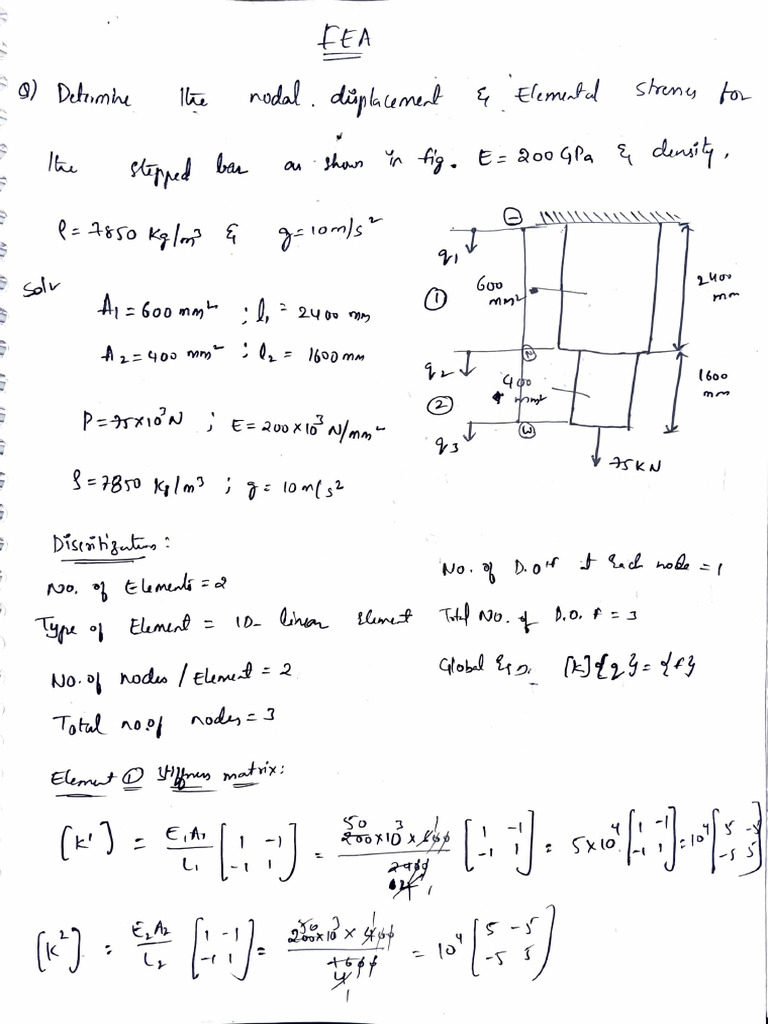 FEA
Q) Determine the nodal displacement & Elemental stresses for
the stepped bar as shown in fig. E = 200 GPa & density,
ρ = 7850 Kg/m³ & g = 10 m/s²
Soln
A₁ = 600 mm² ; l₁ = 2400 mm
A₂ = 400 mm² ; l₂ = 1600 mm
P = 75×10³ N ; E = 200×10³ N/mm²
ρ = 7850 Kg/m³ ; g = 10 m/s²
q₁
①
600
mm²
2400
mm
q₂
②
②
400
mm²
1600
mm
q₃
③
75 KN
Discritization :
No. of Elements = 2
Type of Element = 1D - linear Element
No. of nodes / Element = 2
Total no. of nodes = 3
No. of D.O.F at Each node = 1
Total No. of D.O.F = 3
Global Eqn. [K]{q} = {f}
Element ① Stiffness matrix :
[K¹] = E₁A₁/L₁ [1 -1 -1 1] = 50 200×10³ × 600 1 / 2400 4 1 [1 -1 -1 1] = 5×10⁴ [1 -1 -1 1] = 10⁴ [5 -5 -5 5]
[K²] = E₂A₂/L₂ [1 -1 -1 1] = 50 200×10³ × 400 1 / 1600 4 1 = 10⁴ [5 -5 -5 5]